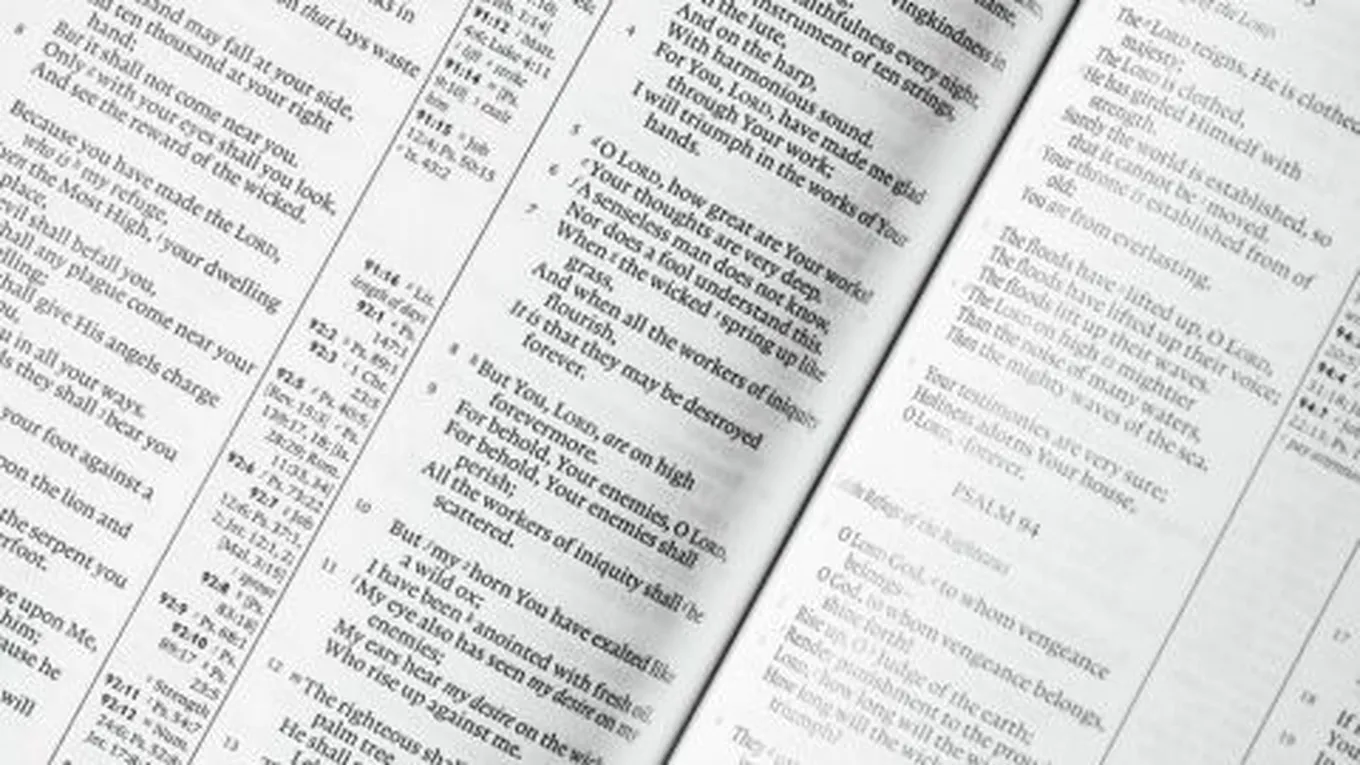 that lays waste
sand may fall at your side,
ten thousand at your right
hand;
But it shall not come near you.
Only with your eyes shall you look,
And see the reward of the wicked.
Because you have made the LORD,
who is my refuge,
the Most High, your dwelling
place,
evil shall befall you,
shall any plague come near your
shall give His angels charge
in all your ways.
they shall bear you
your foot against a
upon the lion and
the serpent you
upon Me,
him;
because he
will
91:12
Matt.
4:6; Luke 4:11
91:14
91:15 Job
12:4; Ps. 50:15
Is. 43:2
91:16 Lit.
length of days
92:1 Ps.
147:1
92:2 Ps. 89:1
92:3 1 Chr.
23:5
92:5 Ps. 40:5
[Rev. 15:3] Ps.
139:17, 18; [Is.
28:29; Rom.
11:33, 34]
92:6 Ps. 73:22
92:7 Job
12:6; Ps. 37:1,
2; Jer. 12:1, 2;
[Mal. 3:15]
sprout
92:8 [Ps.
83:18]
92:9 Ps. 68:1
92:10 Ps.
89:17 Ps.
23:5
92:11 Ps. 54:7
92:12 Num.
24:6; Ps. 52:8;
Jer. 17:8
vingkindness in
faithfulness every night,
instrument of ten strings,
the lute,
And on the harp,
With harmonious sound.
4 For You, LORD, have made me glad
through Your work;
I will triumph in the works of Your
hands.
5 O LORD, how great are Your works!
Your thoughts are very deep.
6 A senseless man does not know,
Nor does a fool understand this.
7 When the wicked spring up like
grass,
And when all the workers of iniquity
flourish,
It is that they may be destroyed
forever.
8 But You, LORD, are on high
forevermore.
9 For behold, Your enemies, O LORD,
For behold, Your enemies shall
perish;
All the workers of iniquity shall be
scattered.
10 But my horn You have exalted like
a wild ox;
I have been anointed with fresh oil.
11 My eye also has seen my desire on my
enemies;
My ears hear my desire on the wick
Who rise up against me.
12 The righteous shall
palm tree,
He shall
13
The LORD reigns, He is clothed
majesty;
The LORD is clothed,
He has girded Himself with
strength.
Surely the world is established, so
that it cannot be moved.
Your throne is established from of
old;
You are from everlasting.
The floods have lifted up, O LORD,
The floods have lifted up their voice;
The floods lift up their waves.
The LORD on high is mightier
Than the noise of many waters,
Than the mighty waves of the sea.
Your testimonies are very sure;
Holiness adorns Your house,
O LORD, forever.
PSALM 94
the Refuge of the Righteous
O LORD God, to whom vengeance
belongs—
O God, to whom vengeance belongs,
shine forth!
Rise up, O Judge of the earth;
Render punishment to the proud
LORD, how long will the wicked
How long will the wick
triumph?
They
17
18
19
If